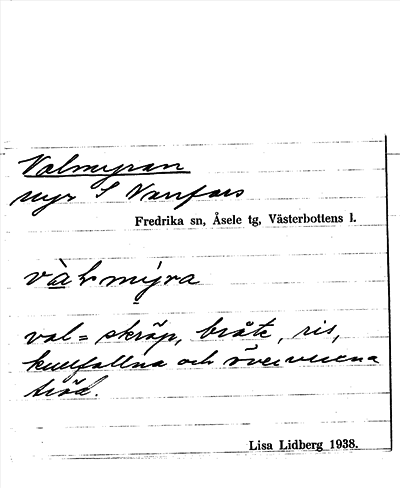 Valmyran
myr S Vanfors
Fredrika sn, Åsele tg, Västerbottens l.
val = skräp, bråte, ris,
kullfallna och
träd.
Lisa Lidberg 1938.